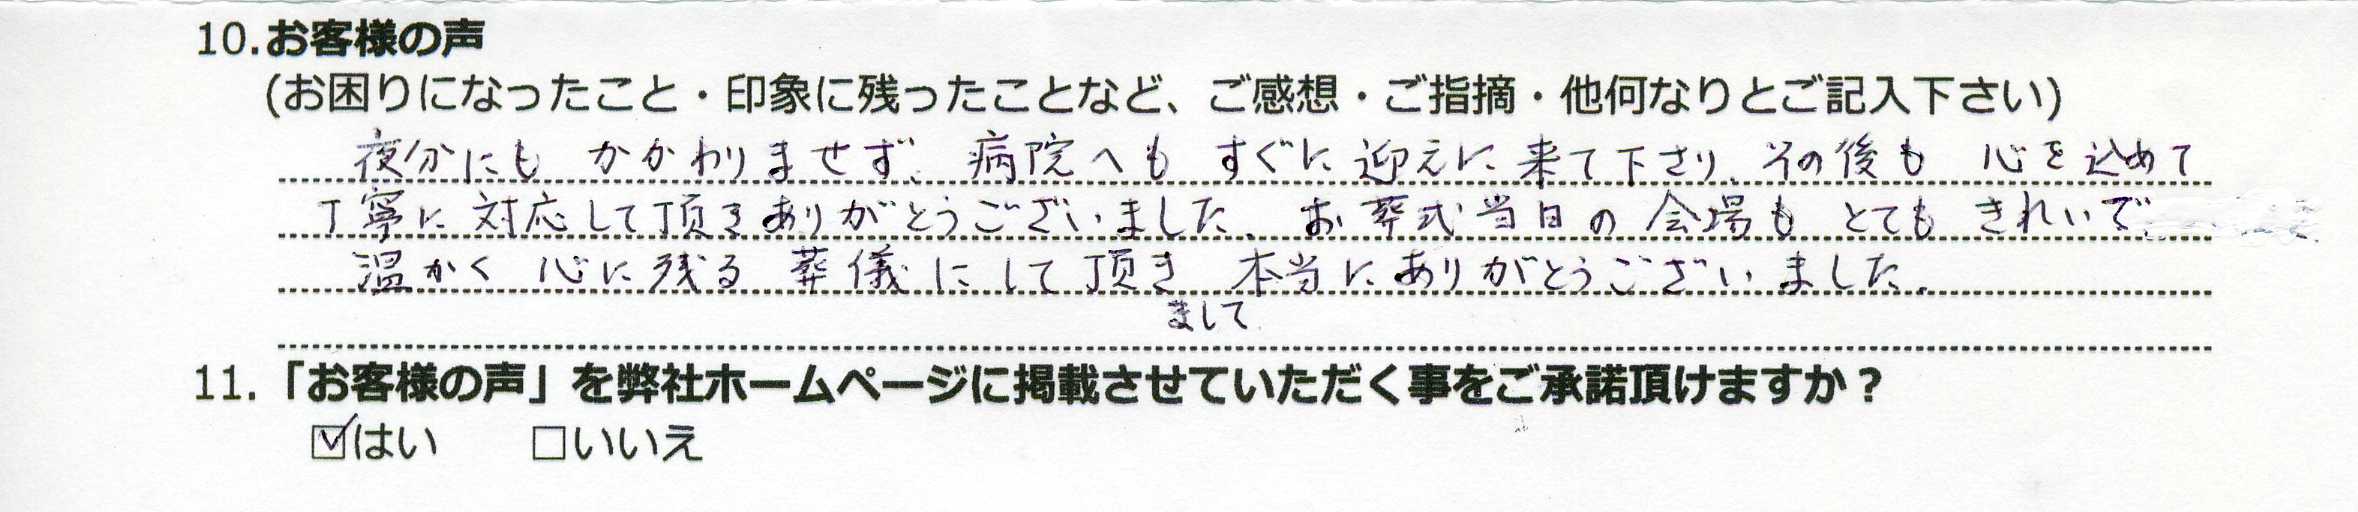 10.お客様の声
(お困りになったこと・印象に残ったことなど、ご感想・ご指摘・他何なりとご記入下さい)
夜分にも かかわりませず、病院へも すぐに 迎えに 来て下さり、その後も 心を込めて
丁寧に 対応して頂きありがとうございました。お葬式当日の 会場も とても きれいで
温かく 心に残る 葬儀にして頂き 本当にありがとうございました。
まして
11.「お客様の声」を弊社ホームページに掲載させていただく事をご承諾頂けますか？
☑はい □いいえ